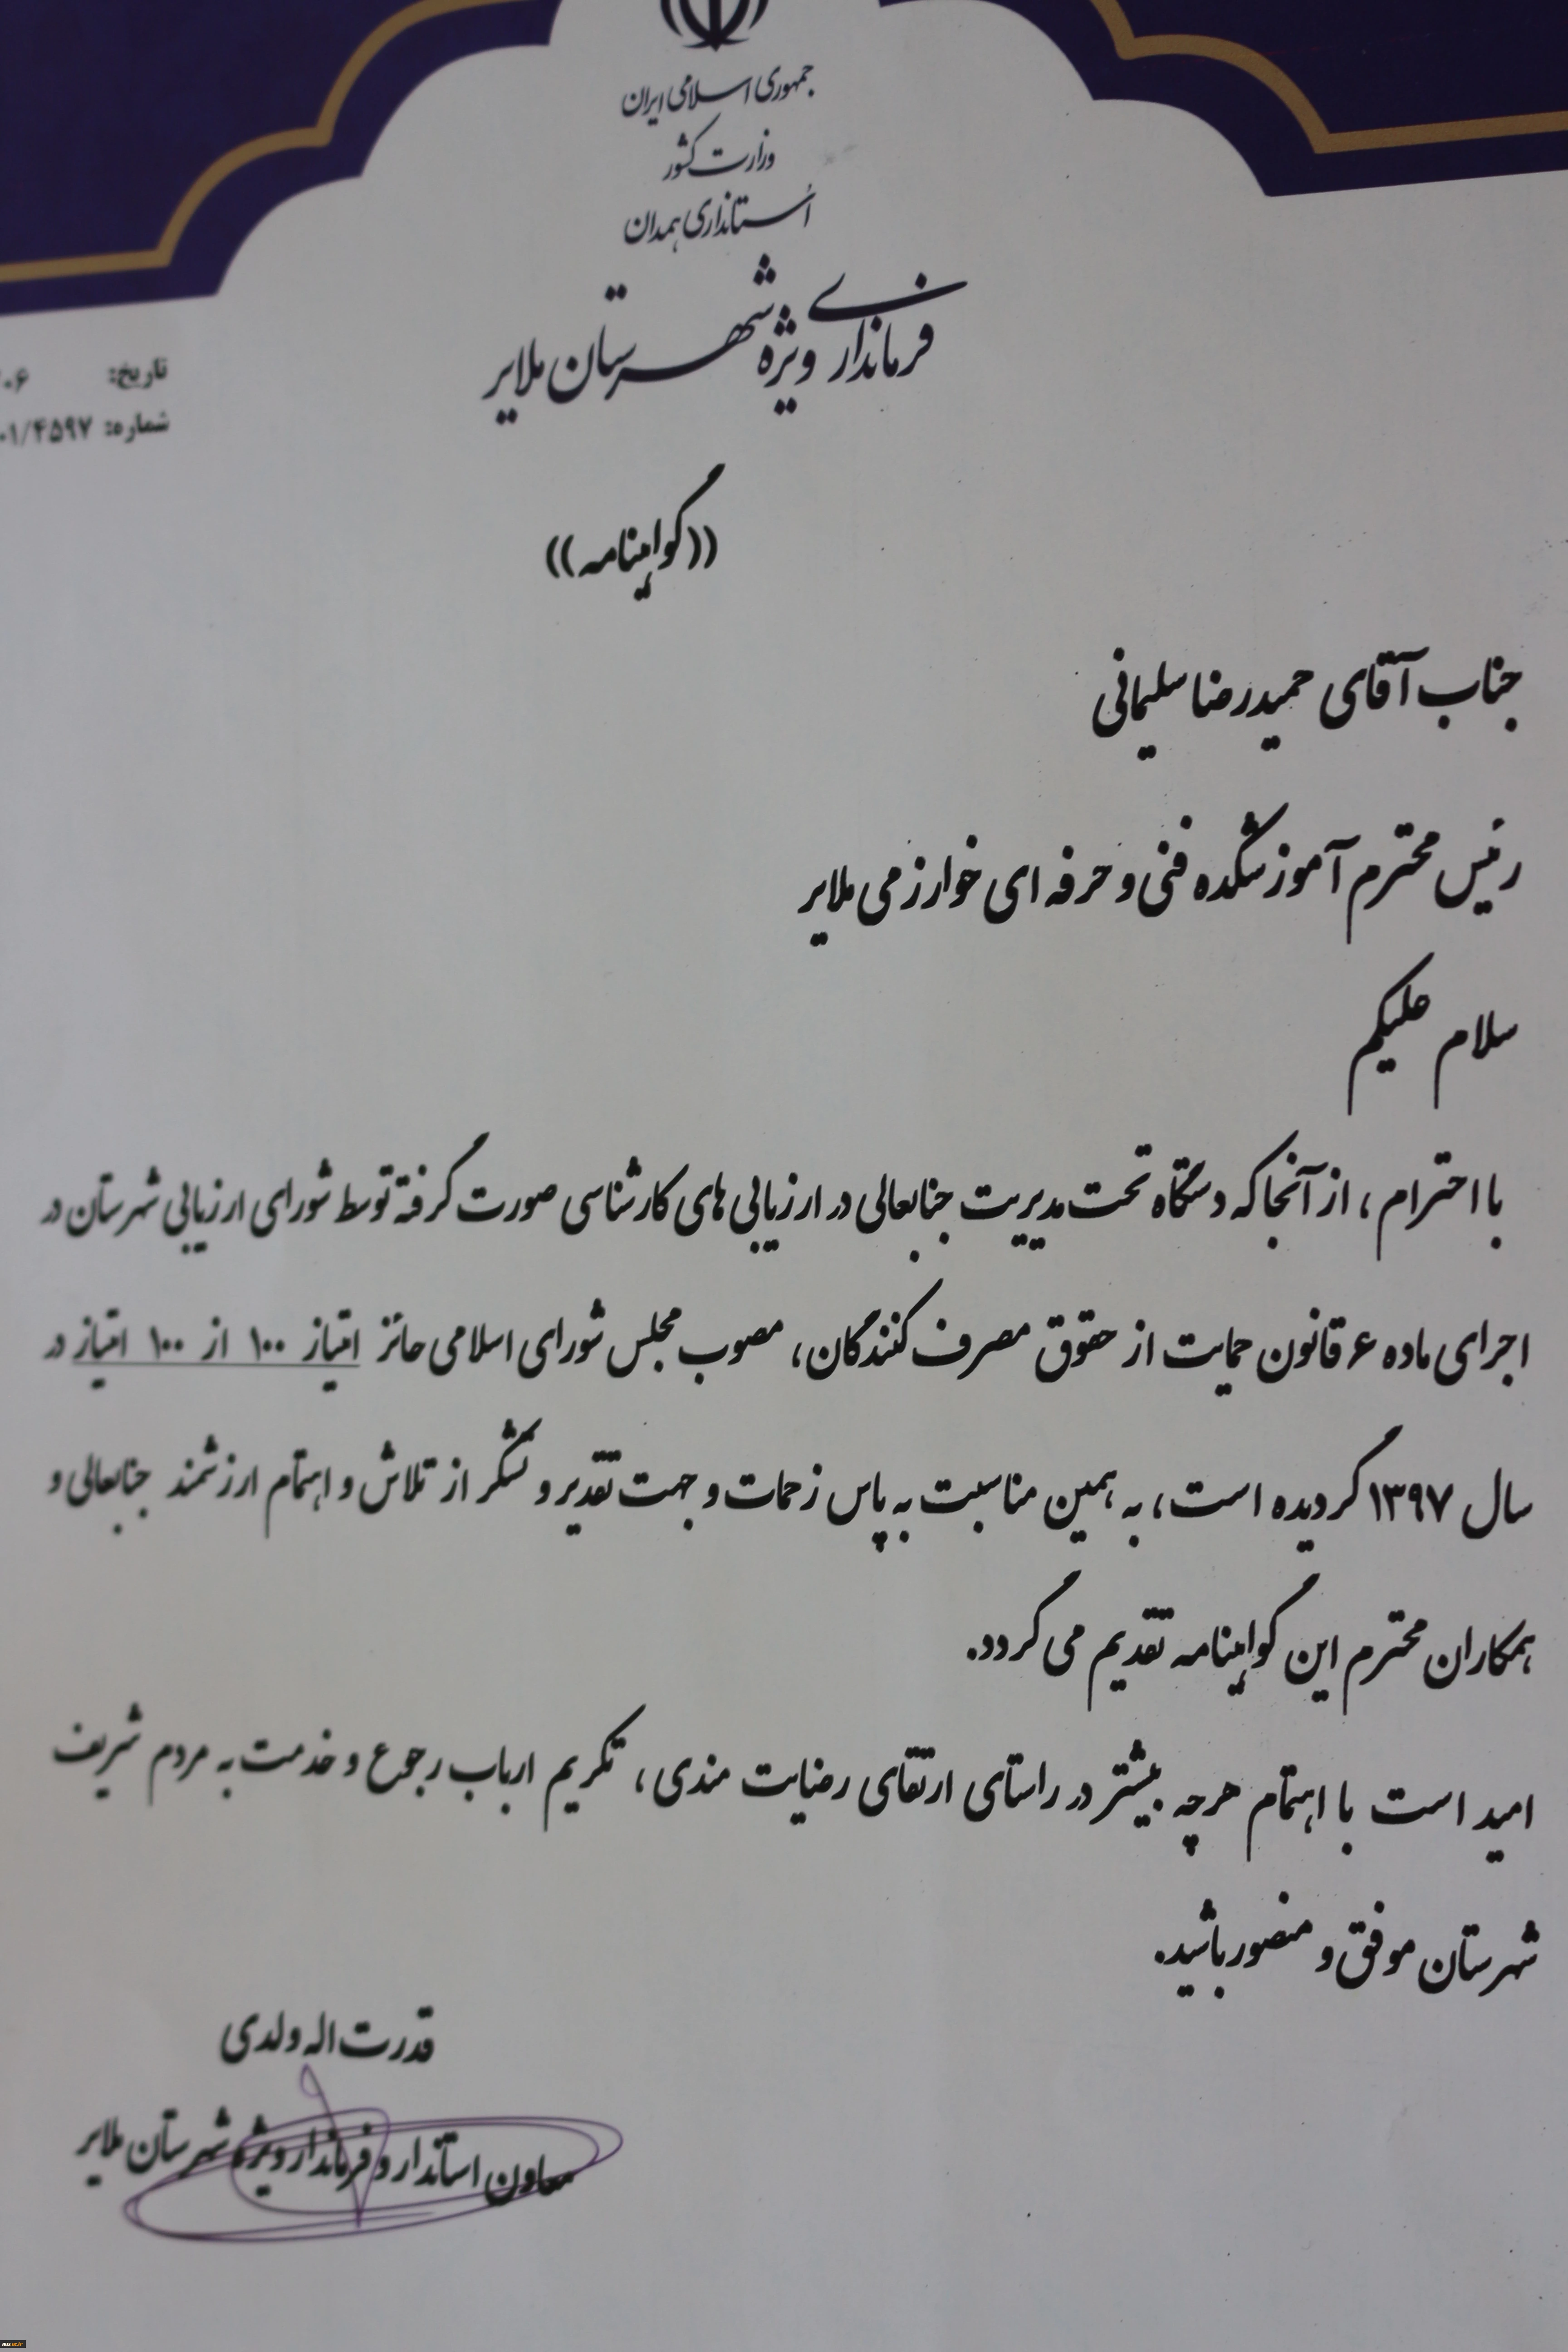 جمهوری اسلامی ایران
وزارت کشور
اُستانداری همدان
فرمانداری ویژه شهرستان ملایر
تاریخ:
شماره: ۰۱/۴۵۹۷
((گواهینامه))
جناب آقای حمیدرضا سلیمانی
رئیس محترم آموزشکده فنی و حرفه ای خوارزمی ملایر
سلام علیکم
با احترام ، از آنجا که دستگاه تحت مدیریت جنابعالی در ارزیابی های کارشناسی صورت گرفته توسط شورای ارزیابی شهرستان در
اجرای ماده ۶ قانون حمایت از حقوق مصرف کنندگان، مصوب مجلس شورای اسلامی حائز امتیاز ۱۰۰ از ۱۰۰ امتیاز در
سال ۱۳۹۷ گردیده است، به همین مناسبت به پاس زحمات و جهت تقدیر و تشکر از تلاش و اهتمام ارزشمند جنابعالی و
همکاران محترم این گواهینامه تقدیم می گردد.
امید است با اهتمام هرچه بیشتر در راستای ارتقای رضایت مندی ، تکریم ارباب رجوع و خدمت به مردم شریف
شهرستان موفق و منصور باشید.
قدرت اله ولدی
معاون استاندار و فرماندار ویژه شهرستان ملایر